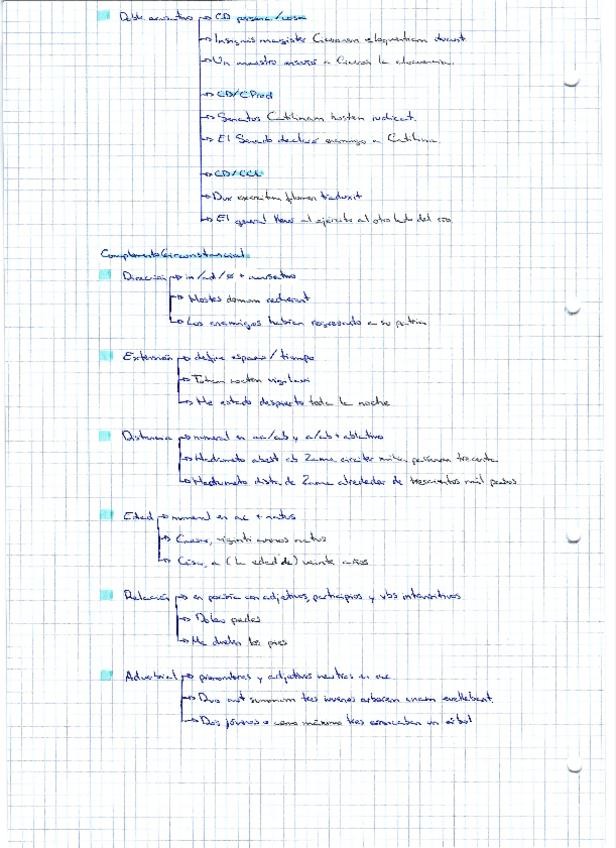 Doble acusativo → CD persona/cosa
→ Insignis magister Ciceronem eloquentiam docuit
→ Un maestro enseñó a Cicerón la elocuencia.
→ CD/CPred
→ Senatus Catilinam hostem iudicat.
→ El Senado declaró enemigo a Catilina.
→ CD/CCL
→ Dux exercitum flumen traduxit
→ El general llevó al ejército al otro lado del río
Complemento Circunstancial
Dirección → in/ad/ø + acusativo
→ Hostes domum redierant
→ Los enemigos habían regresado a su patria
Extensión → define espacio/tiempo
→ Totam noctem vigilavi
→ He estado despierto toda la noche
Distancia → numeral en ac/ab y a/ab + ablativo
→ Hadrumeto abest ab Zama circiter milia passuum trecenta
→ Hadrumeto dista de Zama alrededor de trescientos mil pasos
Edad → numeral en ac + natus
→ Caesar, viginti annos natus
→ César, a (la edad de) veinte años
Relación → en poesía con adjetivos, participios y vbs intransitivos
→ Doleo pedes
→ Me duelen los pies
Adverbial → pronombres y adjetivos neutros en ac.
→ Duo aut summum tres iuvenes arborem evellebant.
→ Dos jóvenes o como máximo tres arrancaban un árbol